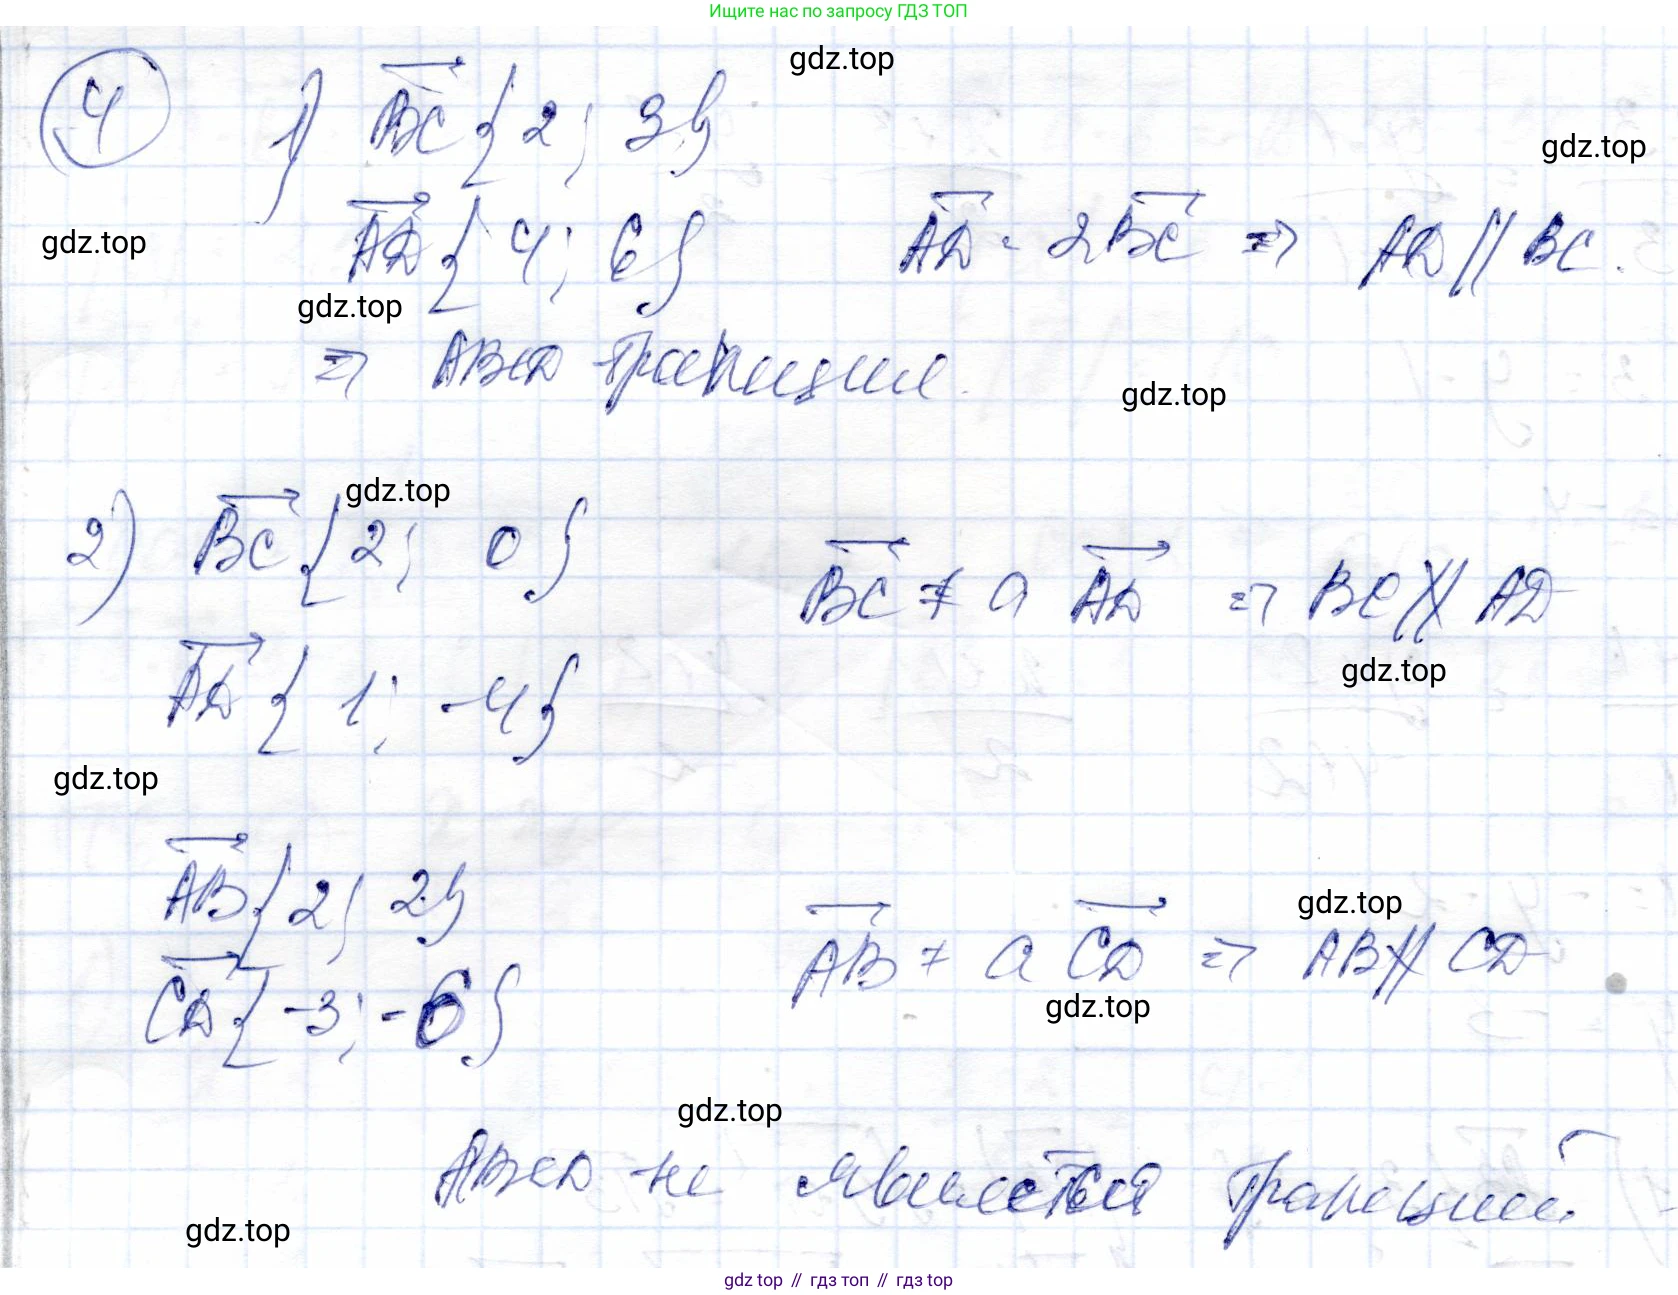 Ищите нас по запросу ГДЗ ТОП
gdz.top
4 1) BC {2; 3}
gdz.top
AD {4; 6} AD = 2BC => AD || BC.
gdz.top
gdz.top
=> ABCD трапеция.
gdz.top
gdz.top
2) BC {2; 0} BC ≠ a AD => BC ∦ AD
gdz.top
AD {1; -4}
gdz.top
AB {2; 2} AB ≠ a CD => AB ∦ CD
gdz.top
CD {-3; -6}
gdz.top
gdz.top
ABCD не является трапецией.
gdz.top
gdz top // гдз топ // гдз top